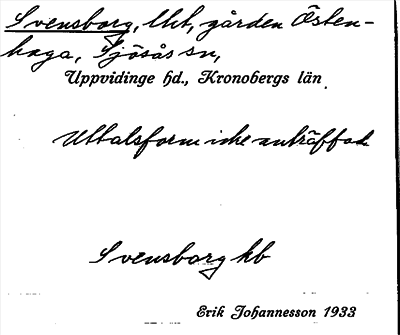 Svensborg, lht, gården Östen-
haga, Sjösås sn,
Uppvidinge hd., Kronobergs län
Uttalsform icke anträffad
Svensborg kb
Erik Johannesson 1933